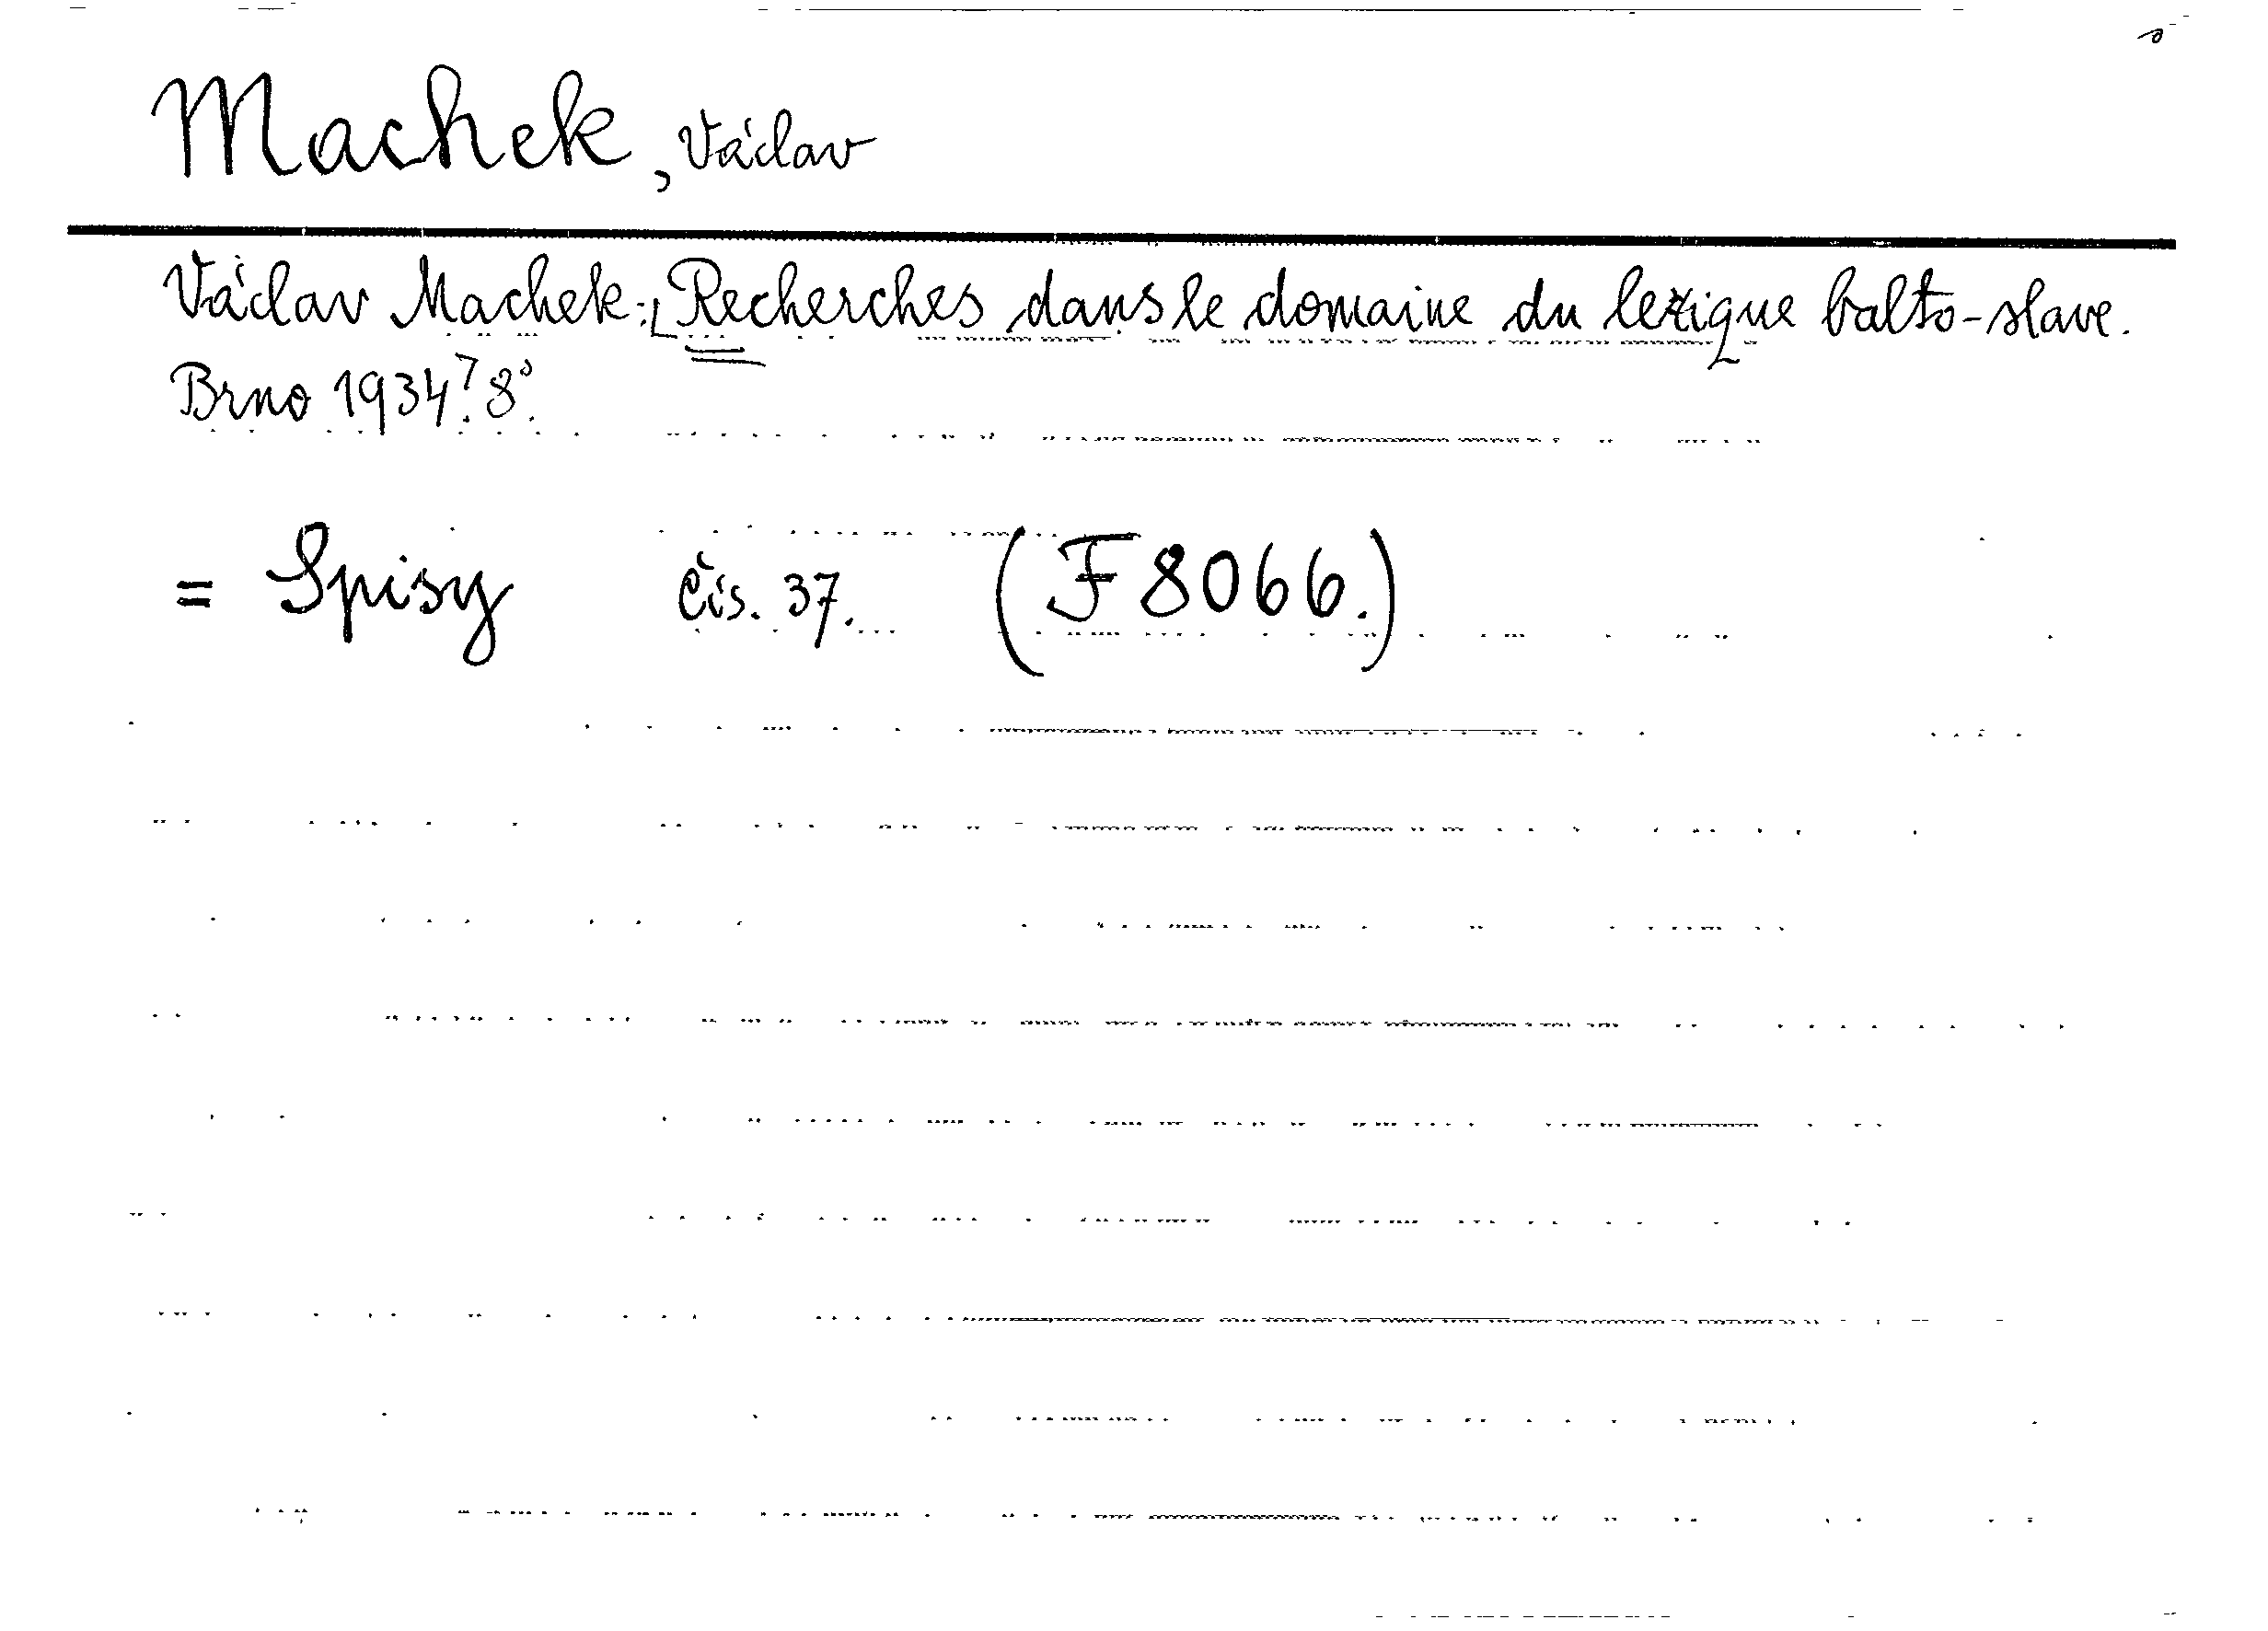 Machek, Václav
Václav Machek: [Recherches dans le domaine du lexique balto-slave.
Brno 1934.] 8°.
= Spisy čís. 37. (F 8066.)